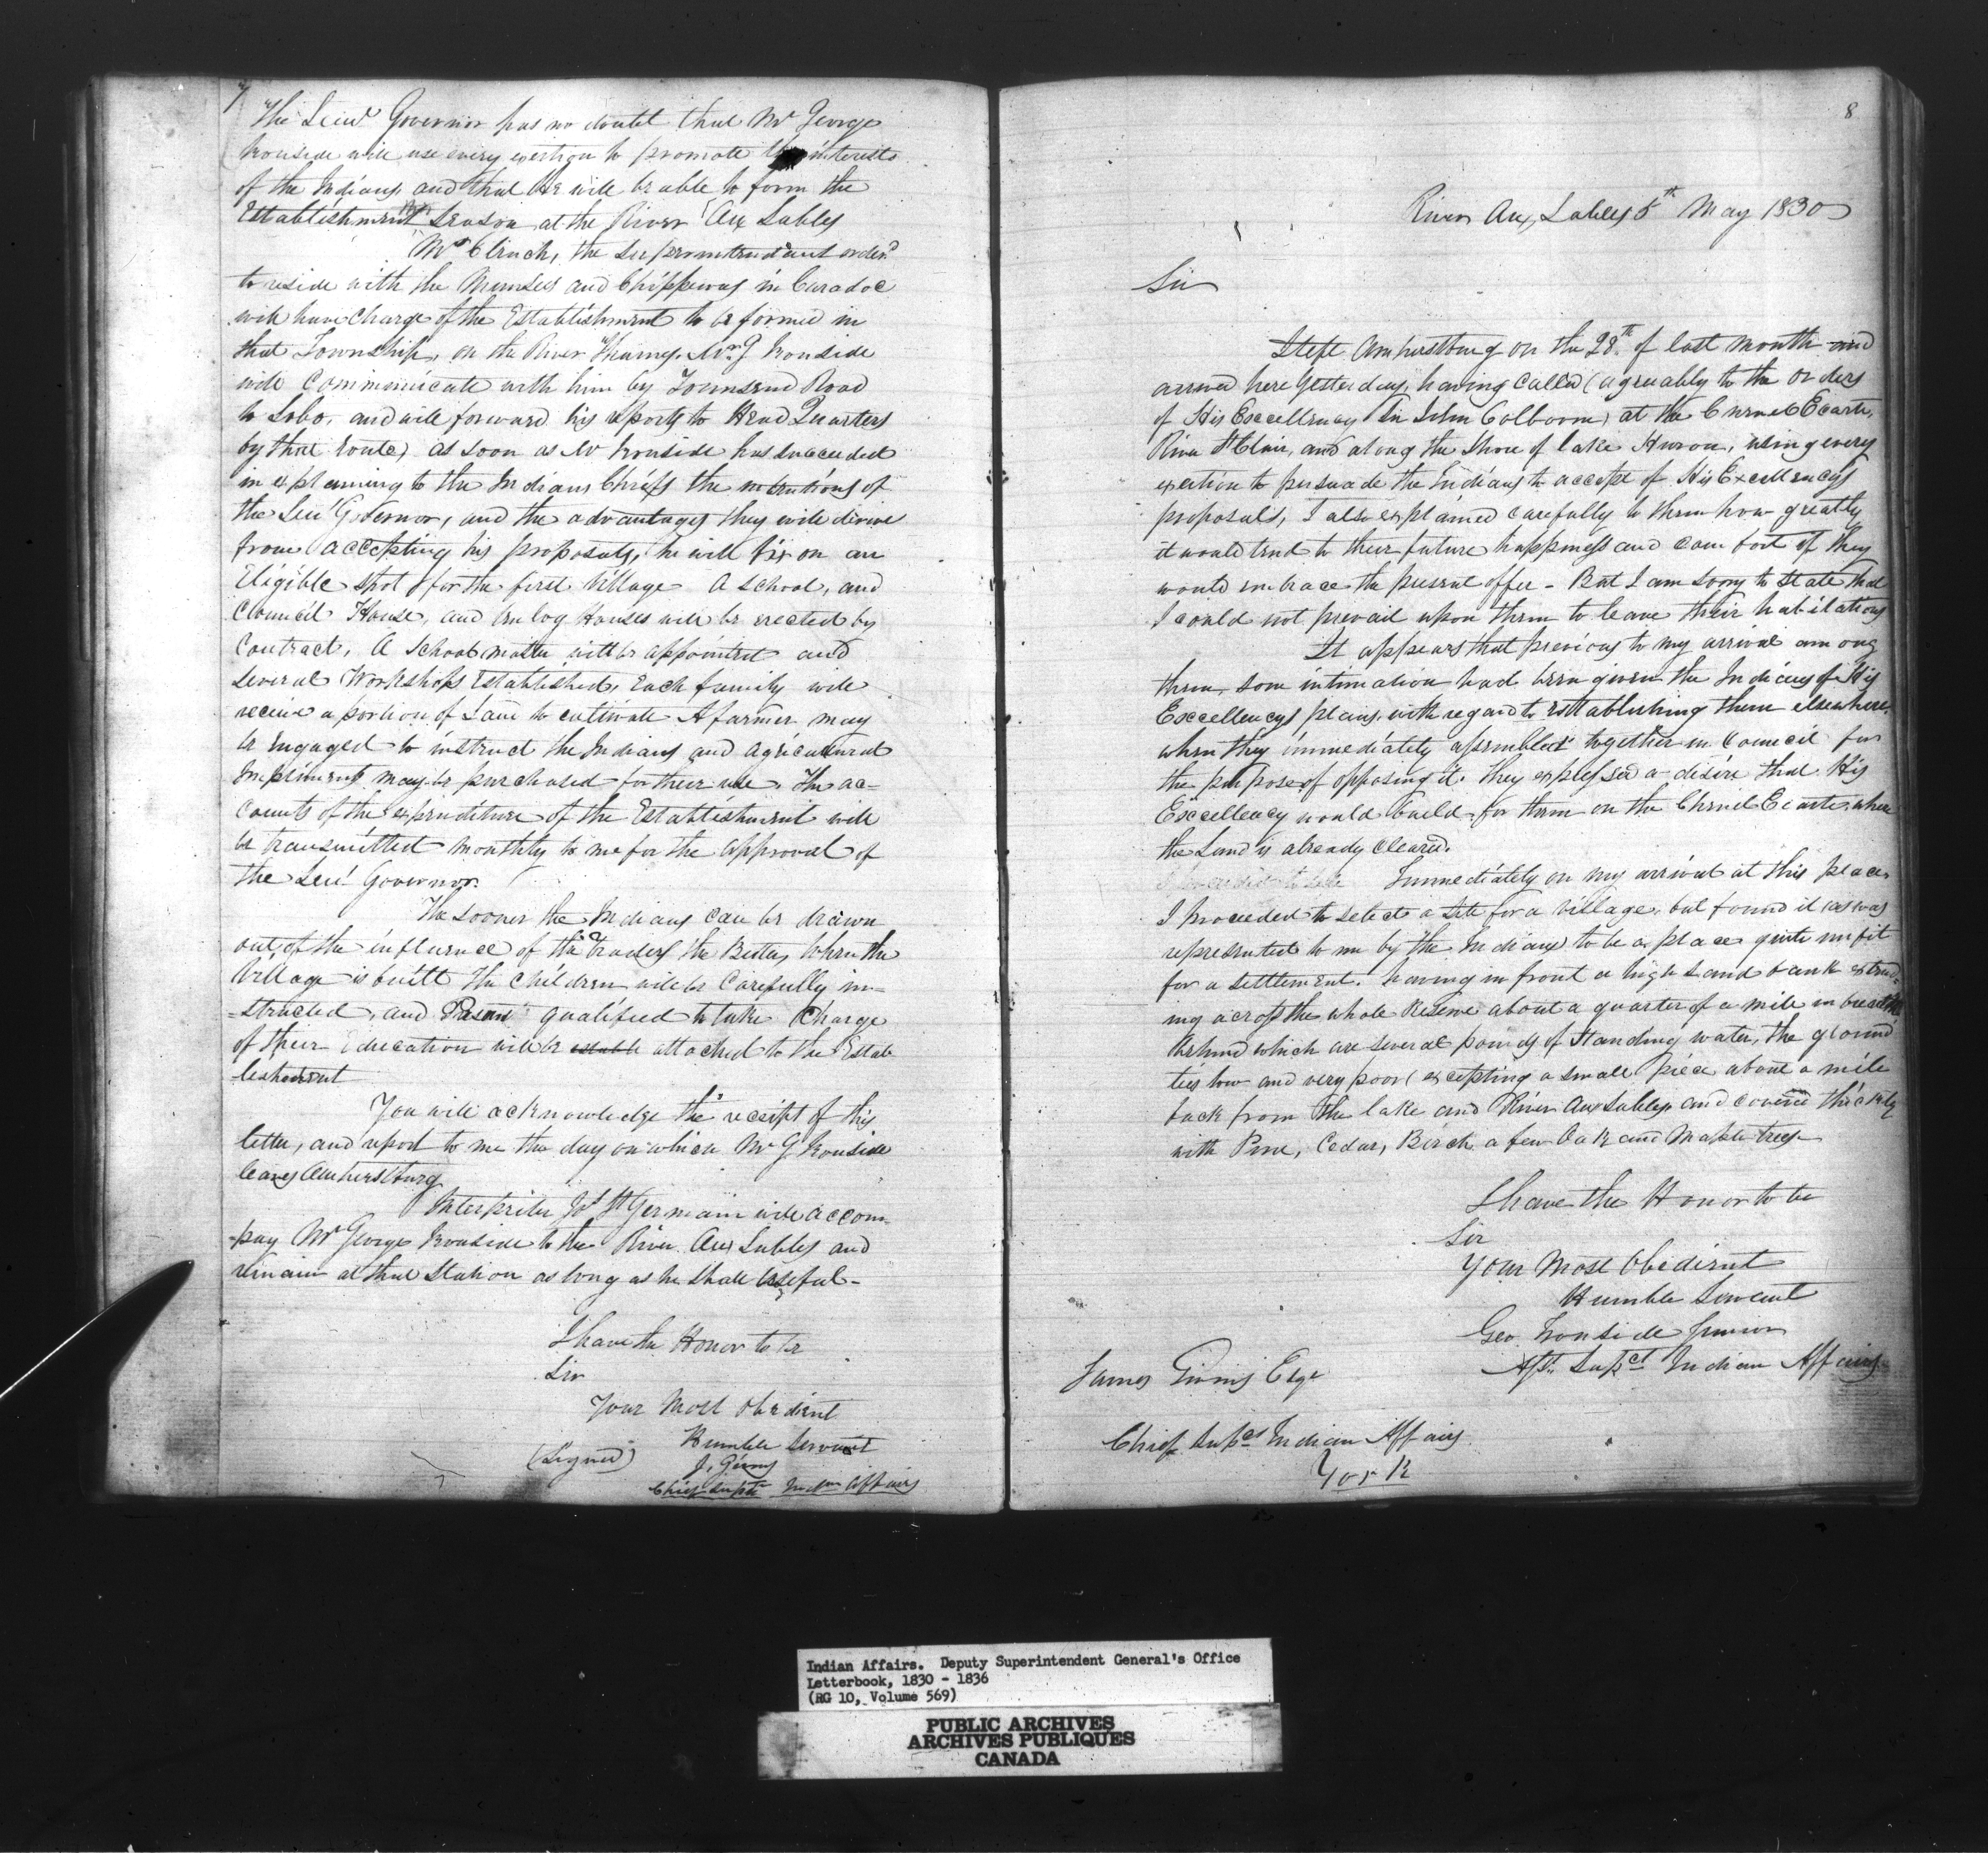 7
The Lieu.t Governor has no doubt that Mr George
Ironside will use every exertion to promote the interests
of the Indians and that he will be able to form the
Establishment this season at the River Aux Sables
Mr Clinch, the Superintendant order'd
to reside with the Munsees and Chippeways in Caradoc
will have charge of the Establishment to be formed in
that Township, on the River Thames. Mr. J Ironside
will communicate with him by Townsend Road
to Lobo, and will forward his reports to Head Quarters
by that route, as soon as Mr Ironside has succeeded
in explaining to the Indians Chiefs the intentions of
the Lieu.t Governor, and the advantages they will derive
from accepting his proposals, he will fix on an
Eligible spot for the first Village A School, and
Council House, and Log Houses will be erected by
Contract, A School master will be appointed and
several Workshops Established, Each family will
receive a portion of Land to cultivate A farmer may
be engaged to instruct the Indians and agricultural
Impliments may be purchased for their use. The ac-
counts of the expenditure of the Establishment will
be transmitted monthly to me for the approval of
the Lieu.t Governor.
The sooner the Indians can be drawn
out of the influence of the Traders the Better, when the
Village is built the Children will be Carefully in-
-structed, and Persons qualified to take Charge
of their Education will be attached to the Estab
lishment
You will acknowledge the receipt of this
letter, and report to me the day on which Mr G Ironside
leaves Amherstburg
Interpriter Jos St Germain will accom-
-pay Mr George Ironside to the River Aux Sables and
remain at that Station as long as he shall useful-
I have the Honor to be
Sir
Your Most Obedient
Humble Servant
(Signed)
J. Givins
Chief Supt Indn Affairs
8
River Aux Sables 5th May 1830
Sir
I left Amherstburg on the 28th of last month and
arrived here Yesterday, having called (agreeably to the orders
of His Excellency Sir John Colboorn) at the Chenel Ecarte,
River St Clair, and along the Shore of lake Huron, using every
exertion to persuade the Indians to accept of His Excellencys
proposals, I also explained carefully to them how greatly
it would tend to their future happiness and comfort if they
would embrace the present offer - But I am sorry to state that
I could not prevail upon them to leave their habitations
It appears that previous to my arrival among
them, some intimation had been given the Indians of His
Excellencys plans, with regard to establishing them elsewhere,
when they immediately assembled together in Council for
the purpose of opposing it. They expressed a desire that His
Excellency would build for them on the Chenel Ecarte, where
the Land is already Cleared.
Immediately on my arrival at this place,
I proceeded to select a site for a Village, but found it as was
represented to me by the Indians to be a place quite unfit
for a settlement. having in front a high Sand bank extend-
ing across the whole Reserve about a quarter of a mile in breadth
behind which are several ponds of Standing water, the ground
lies low and very poor (excepting a small piece about a mile
back from the lake and River Aux Sables, and covered thickly
with Pine, Cedar, Birch a few Oak and Maple trees-
I have the Honor to be
Sir
Your Most Obedient
Humble Servant
Geo Ironside Junior
Asst. Supdt Indian Affairs
James Givins Esqr
Chief Supdt Indian Affairs
York
Indian Affairs. Deputy Superintendent General's Office
Letterbook, 1830 - 1836
(RG 10, Volume 569)
PUBLIC ARCHIVES
ARCHIVES PUBLIQUES
CANADA